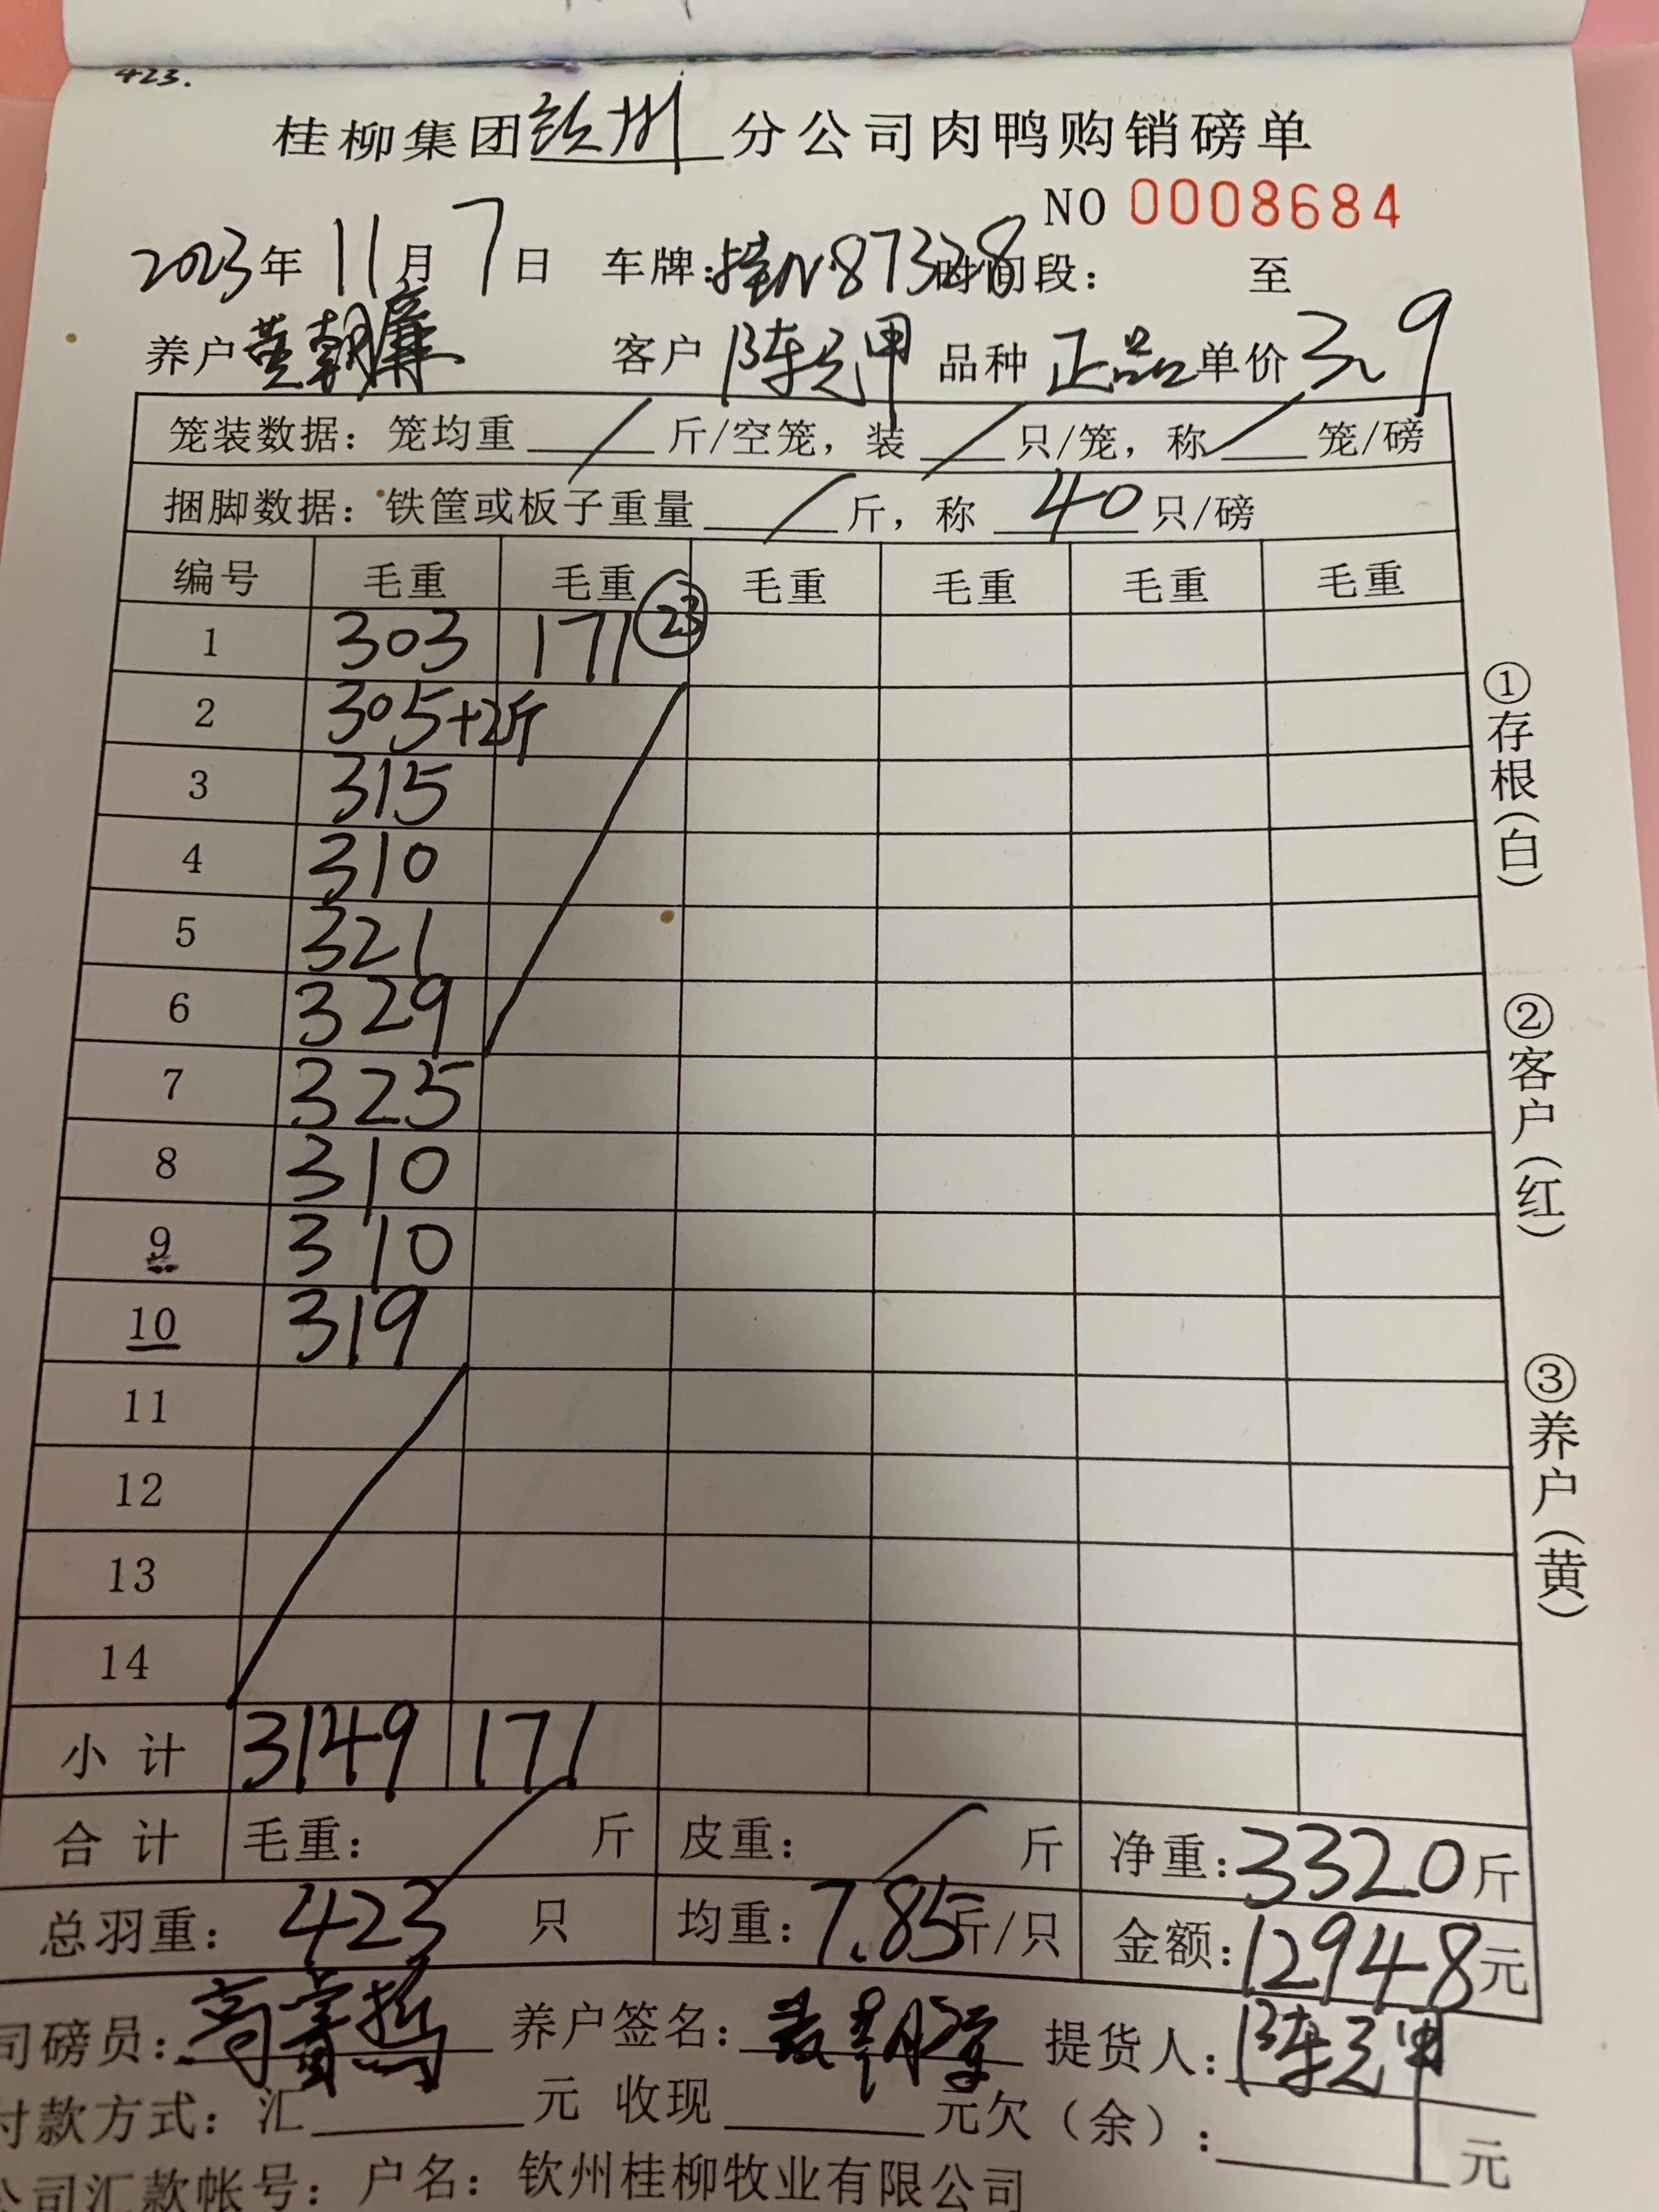 423.
桂柳集团钦州分公司肉鸭购销磅单
NO 0008684
2023年 11月 7日 车牌:桂N·87328 时间段: 至
养户 黄朝廉 客户 陈元甲 品种 正品 单价 3.9
笼装数据: 笼均重 / 斤/空笼, 装 / 只/笼, 称 / 笼/磅
捆脚数据: 铁筐或板子重量 / 斤, 称 40 只/磅
编号 毛重 毛重 毛重 毛重 毛重 毛重
1 303 171 ㉓
2 305+2斤
3 315
4 310
5 321
6 329
7 325
8 310
9 310
10 319
11
12
13
14
小计 3149 171
合计 毛重: / 斤 皮重: / 斤 净重: 3320 斤
总羽重: 423 只 均重: 7.85 斤/只 金额: 12948 元
司磅员: 养户签名: 提货人: 陈元甲
付款方式: 汇 元 收现 元 欠(余): 元
公司汇款帐号: 户名: 钦州桂柳牧业有限公司
①存根(白)
②客户(红)
③养户(黄)